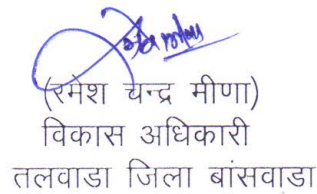 (रमेश चन्द्र मीणा)
विकास अधिकारी
तलवाडा जिला बांसवाडा